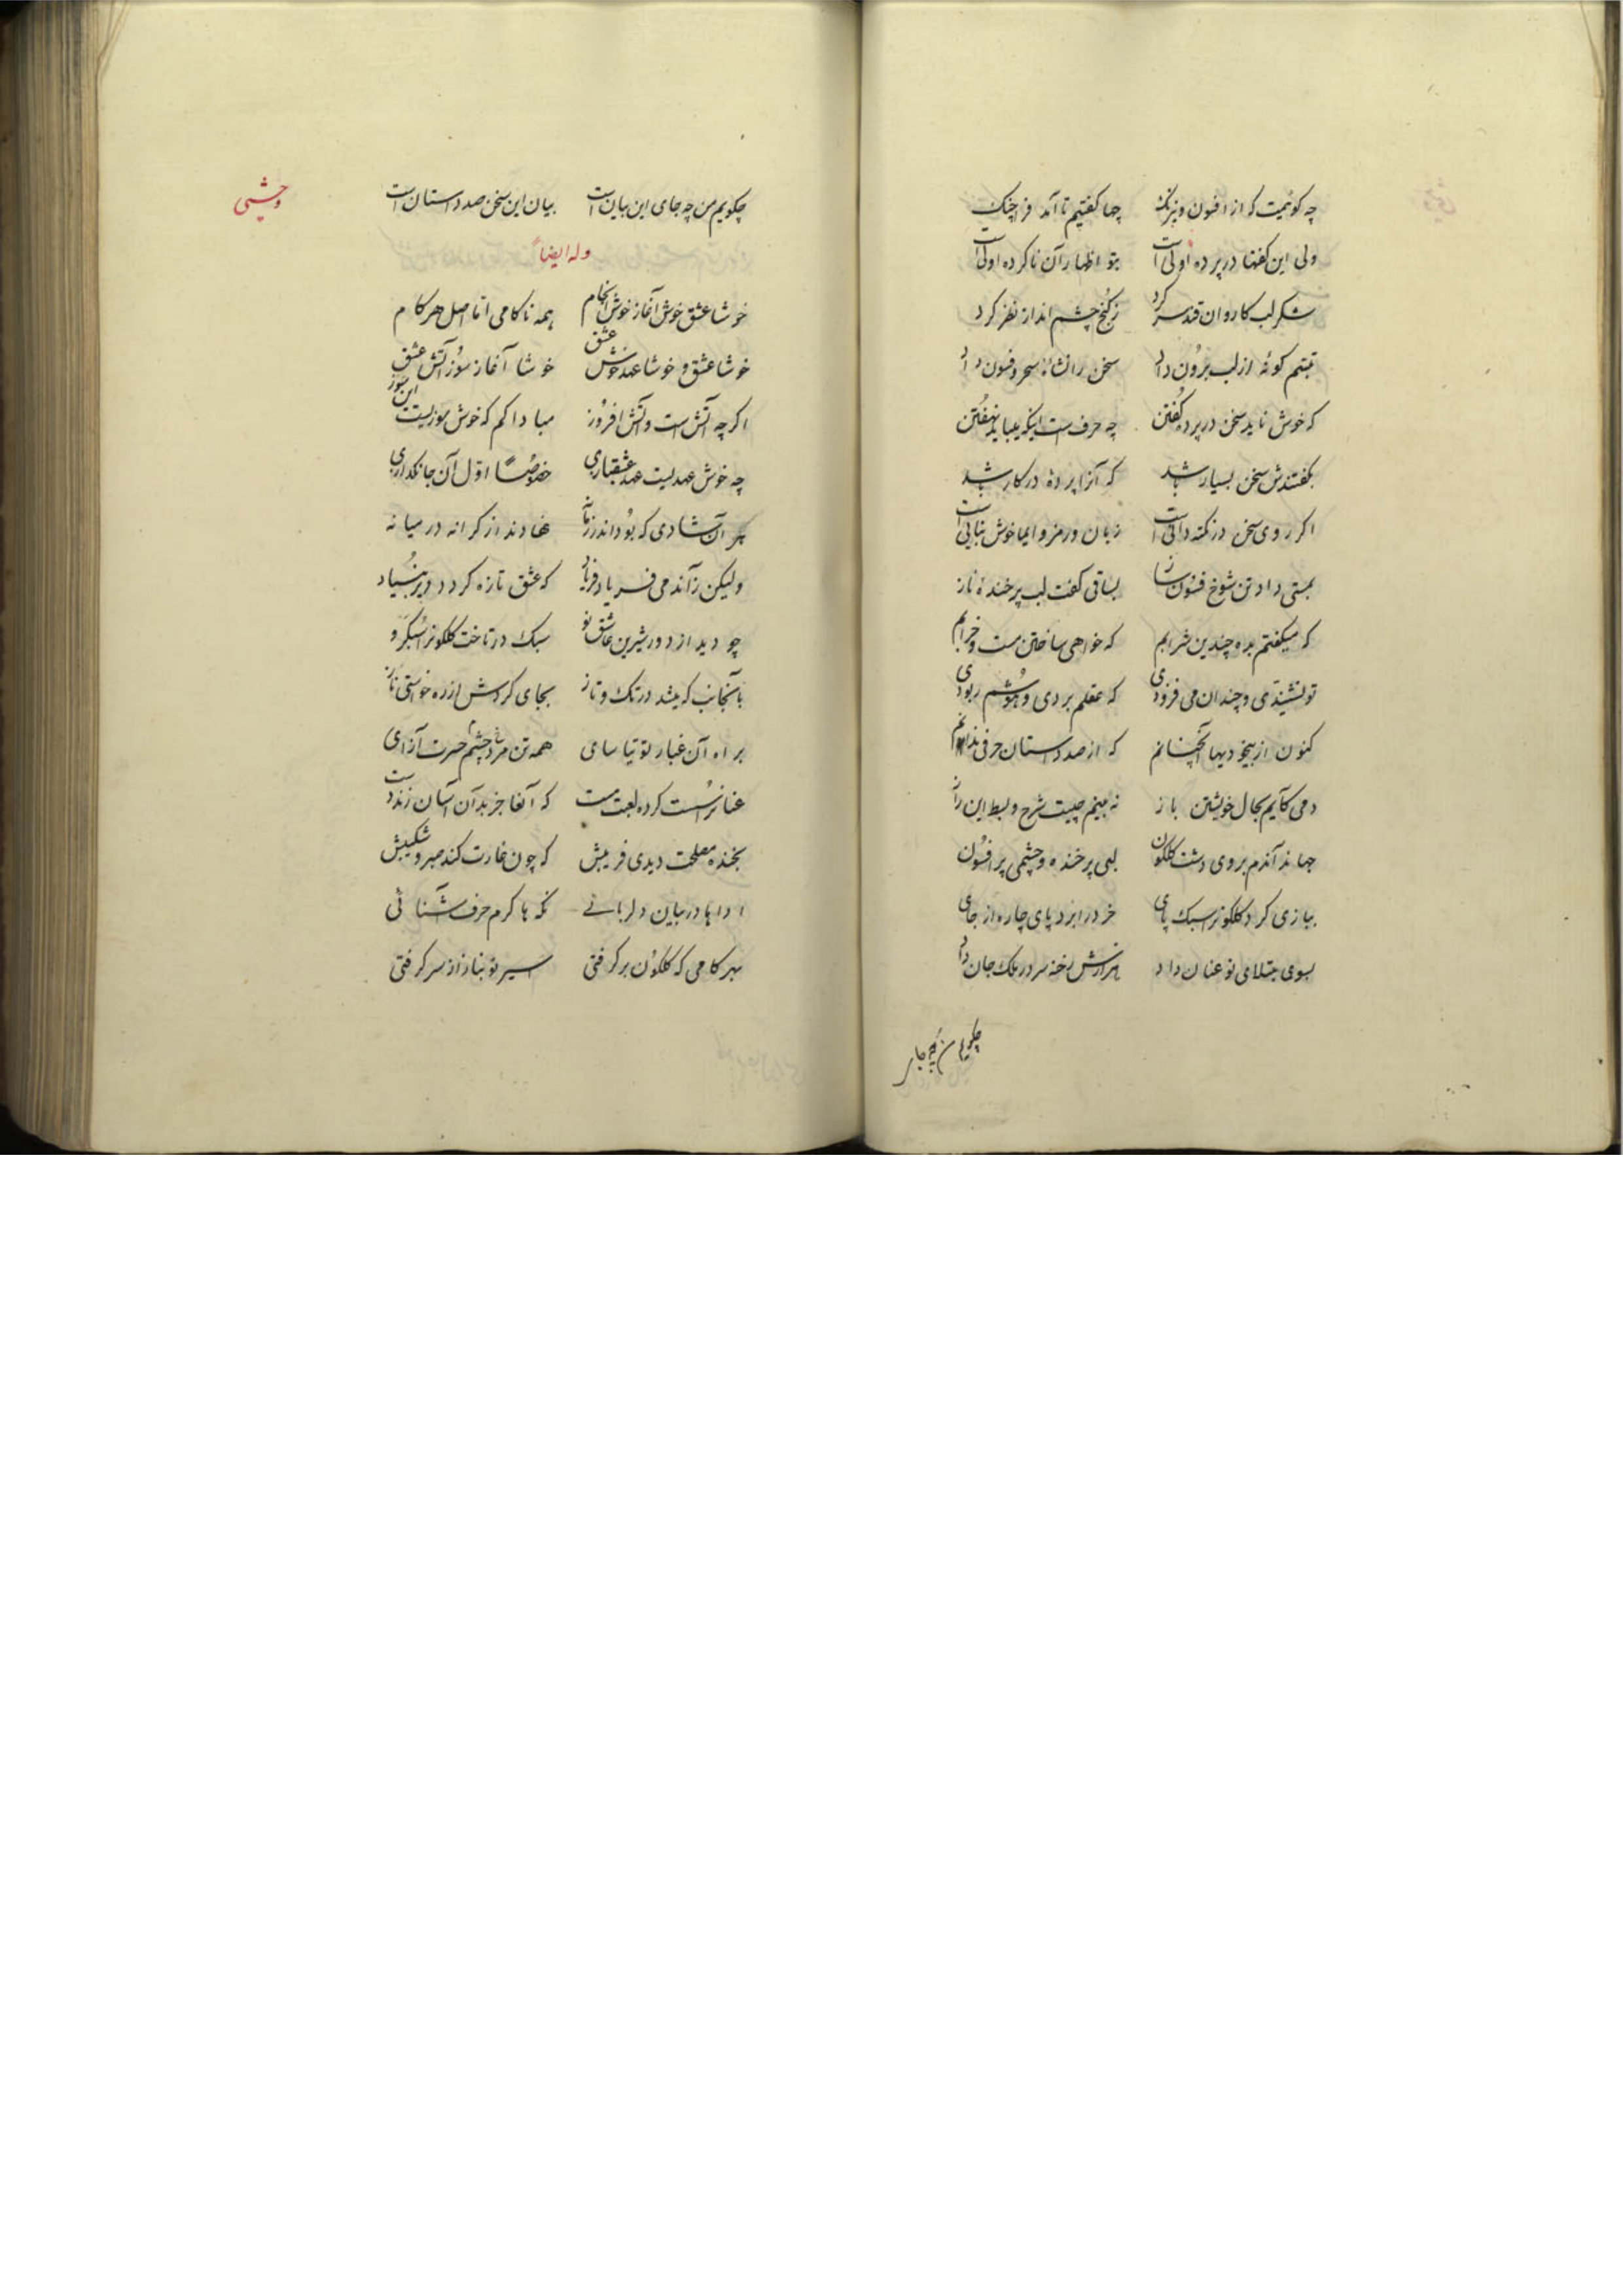 چه کوئیمت که از افسون و نیرنک چها کفتیم تا آمد فراچنک
ولی این کفتها در پرده اولی است بتو اظهار آن ناکرده اولی است
شکر لب کاروان قند سر کرد ز کنج چشم انداز نظر کرد
تبسم کونهٔ از لب برون داد سخن را نشاءٔ سحر و فسون داد
که خوش ناید سخن در پرده کفتن چه حرفست اینکه میباید نهفتن
بکفتندش سخن بسیار باشد که آنرا پردهٔ در کار باشد
اکر روی سخن در نکته دانی است زبان ورمز و ایما خوش بیانی است
بمستی داد تن شوخ فسون ساز بساقی کفت لب پر خندهٔ ناز
که میکفتم بده چندین شرابم که خواهی ساختن مست و خرابم
تو نشنیدی و چندان می فزودی که عقلم بردی و هوشم ربودی
کنون از بیخودیها آنچنانم که از صد داستان حرفی ندانم
دمی کآیم بحال خویشتن باز به بینم چیست شرح و بسط این راز
جهاند آندم بروی دشت کلکون لبی پر خنده و چشمی پر افسون
ببازی کرد کلکونرا سبک پای خرد را برد پای چاره از جای
بسوی مبتلای نو عنان داد هزارش رخنه سر در ملک جان داد
چکویم من چه جای
وحشی
چکویم من چه جای این بیان است بیان این سخن صد داستان است
وله ایضاً
خوشا عشق خوش آغاز خوش انجام همه ناکامی اما اصل هر کام
خوشا عشق و خوشا عهد خوش عشق خوشا آغاز سوز آتش عشق
اکر چه آتش است و آتش افروز مبادا کم که خوش سوزیست این سوز
چه خوش عهدیست عهد عشقبازی خصوصاً اول آن جانکدازی
هر آن شادی که بود اندر زمانه نهادند از کرانه در میانه
چو دید از دور شیرین عاشق نو سبک در تاخت کلکونرا سبکرو
بآنجانب که میشد در تک و تاز بجای کردش از ره خواستی ناز
براه آن غبار توتیا سای همه تن مرد چشم حسرت آزای
عنانرا سست کرده لعبت مست که آنجا جز بدان آسان زند دست
بخنده مصلحت دیدی فریبش که چون غارت کند صبر و شکیبش
اداها در بیان دلربائی نکه ها کرم حرف آشنائی
بهر کامی که کلکون بر کرفتی اسیر نو نیاز از سر کرفتی